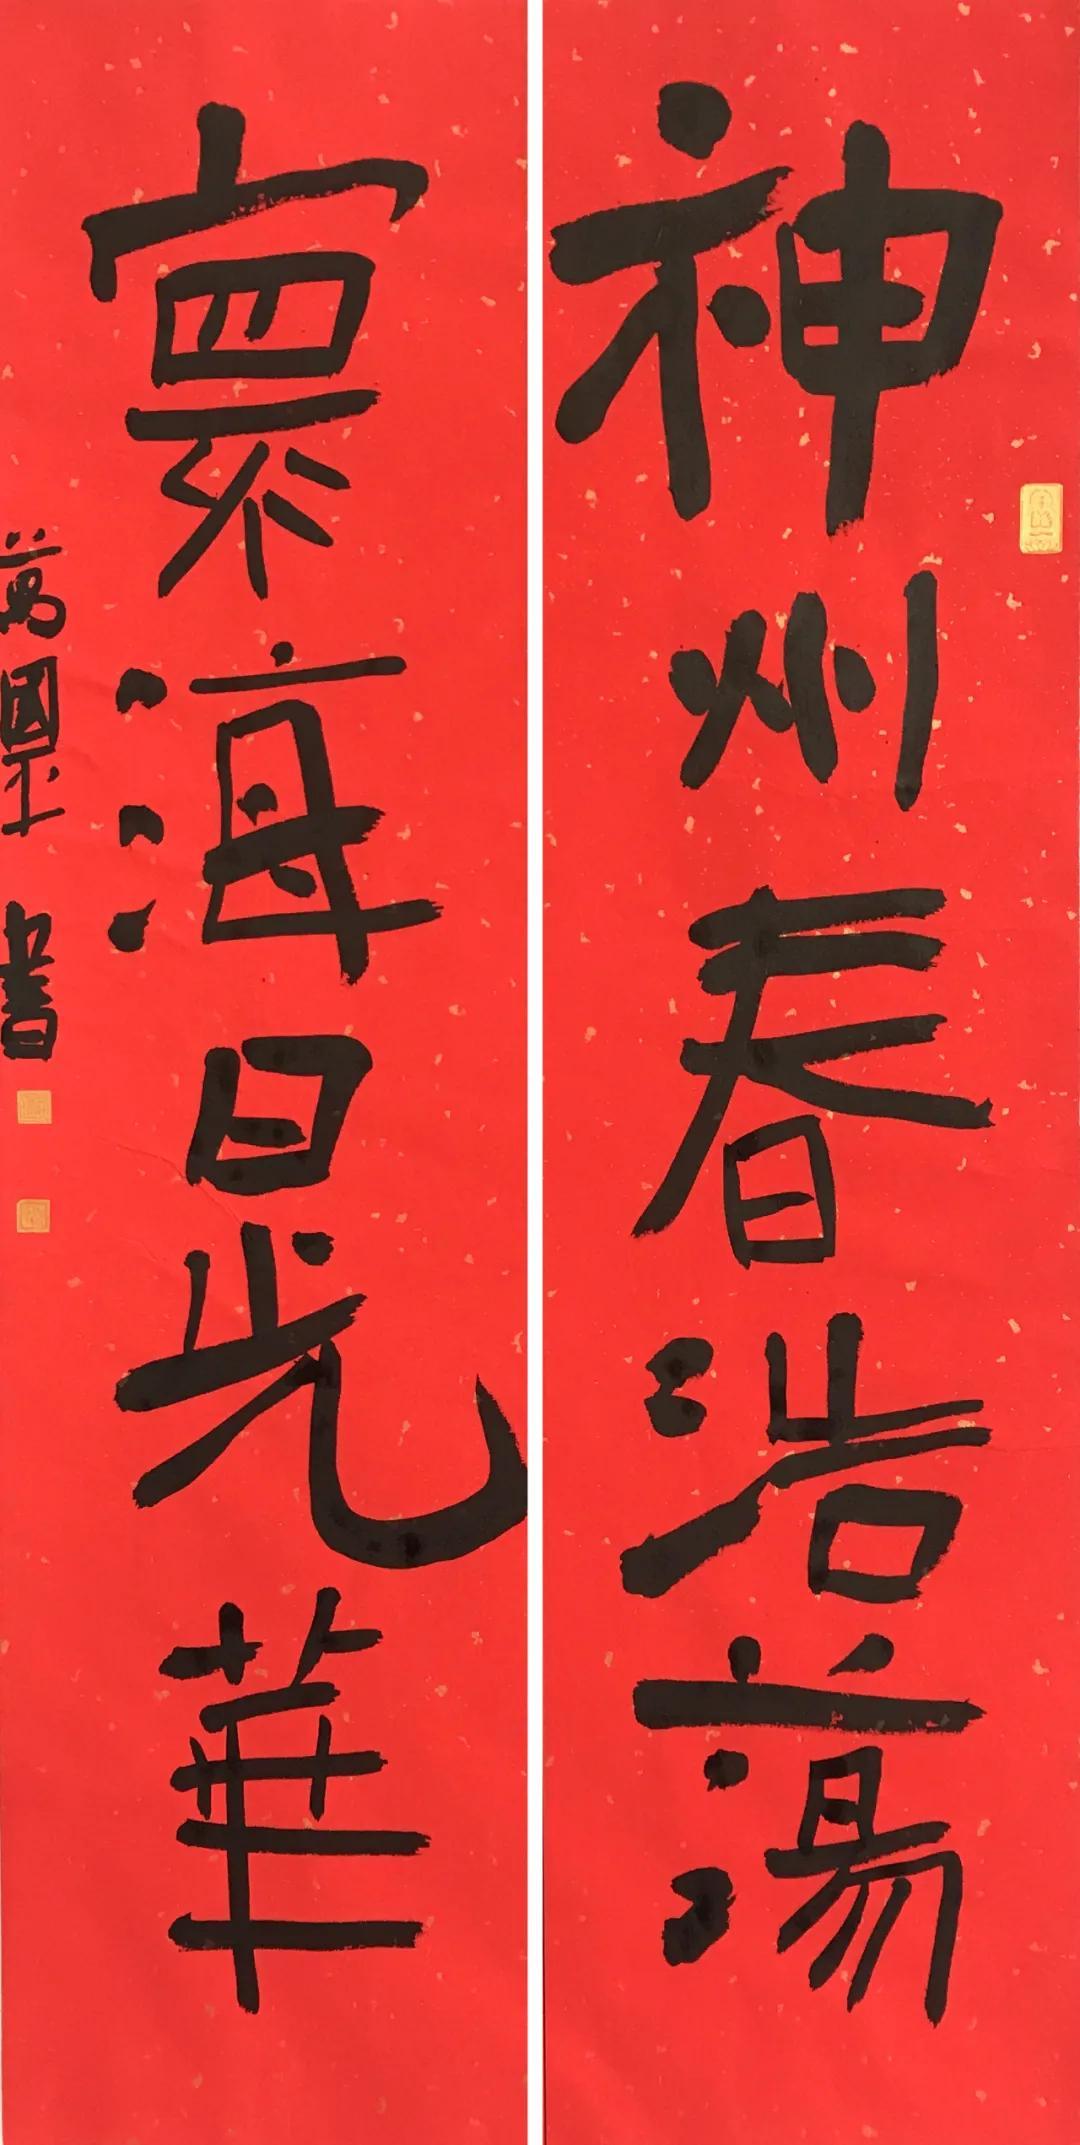 神州春浩蕩
寰海日光華
萬國玉書